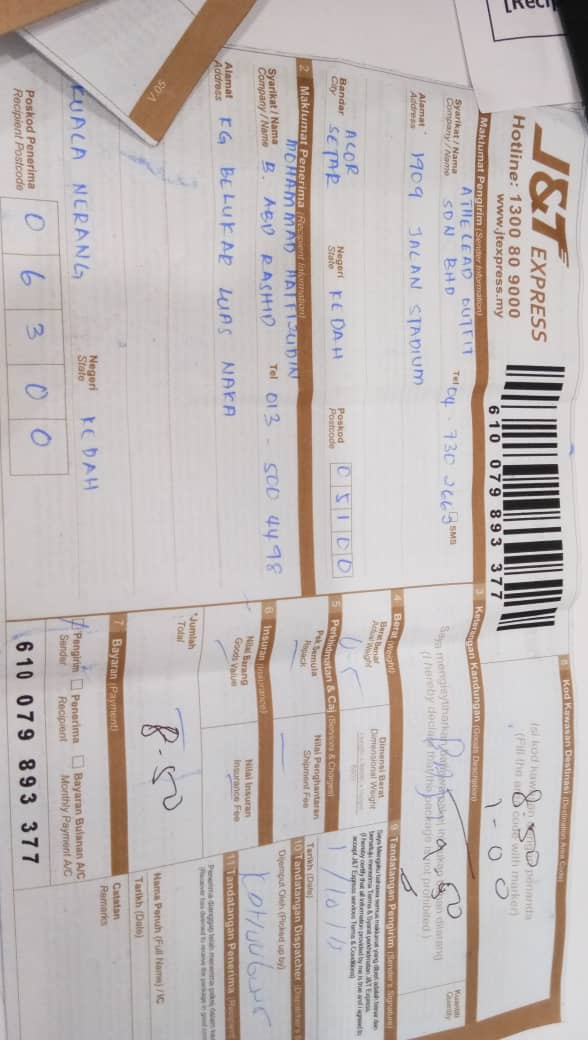 J&T EXPRESS
Hotline: 1300 80 9000
www.jtexpress.my
610 079 893 377
Maklumat Pengirim (Sender Information)
Syarikat / Nama
Company / Name
ATHELEAD OUTFIT
SDN BHD
Tel 04 - 730 2663
SMS
Alamat
Address
1909 JALAN STADIUM
Bandar
City
ALOR
SETAR
Negeri
State
KEDAH
Poskod
Postcode
05100
2 Maklumat Penerima (Recipient Information)
Syarikat / Nama
Company / Name
MOHAMMAD HAFFIZUDIN
B. ABD RASHID
Tel 013 - 500 4498
Alamat
Address
KG BELUKAR LUAS NAKA
KUALA NERANG
Negeri
State
KEDAH
Poskod Penerima
Recipient Postcode
06300
V.05
8 Kod Kawasan Destinasi (Destination Area Code)
(Fill the area code with marker)
8.50
1-00
3 Keterangan Kandungan (Goods Description)
Kuantiti
Quantity
9.50
4 Berat (Weight)
Berat Benar
Actual Weight
Dimensi Berat
Dimensional Weight
5 Perkhidmatan & Caj (Services & Charges)
Pek Semula
Repack
Nilai Penghantaran
Shipment Fee
6 Insuran (Insurance)
Nilai Barang
Goods Value
Nilai Insuran
Insurance Fee
*Jumlah
Total
8.50
7 Bayaran (Payment)
*Pengirim
Sender
Penerima
Recipient
Bayaran Bulanan A/C
Monthly Payment A/C
610 079 893 377
9 Tandatangan Pengirim (Sender's Signature)
Tarikh (Date)
10 Tandatangan Dispatcher
Dijemput Oleh (Picked up by)
11 Tandatangan Penerima (Recipient
Nama Penuh (Full Name) / IC
Tarikh (Date)
Catatan
Remarks